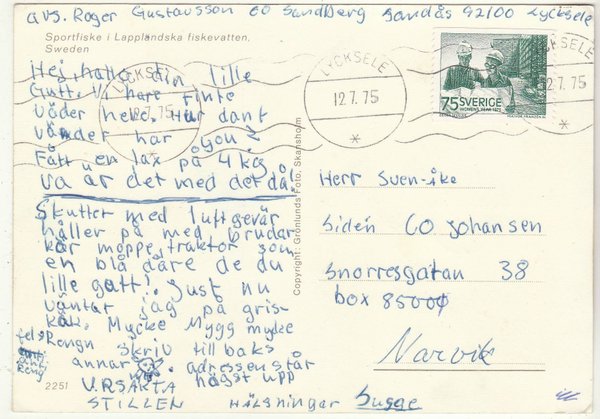 avs. Roger Gustavsson CO Sandberg Sandås 92100 Lycksele
Sportfiske i Lappländska fiskevatten.
Sweden
Hej, hallå din lille
Gutt. Vi hare finte
väder hela. Hur dant
vänder har ôyou?
Fått u en lax på 4 kg
va är det med det då!
Skutter med luftgevär
håller på med, brudar
kör moppe, traktor som
en blå dåre de du
lille gatt! Just nu
väntar jag på gris-
kåk. Mycke Mygg mycke
Rengn skriv till baks
annars adressen står
V.RSÄKTA högst upp
STILLEN HÄLSNINGAR Sugge
2251
Copyright: Grönlunds Foto, Skansholm
LYCKSELE
12.7.75
LYCKSELE
12.7.75
LYCKSELE
12.7.75
75 SVERIGE
Herr Sven-Åke
Sidén CO Johansen
Snorresgatan 38
box 8500
Narvik